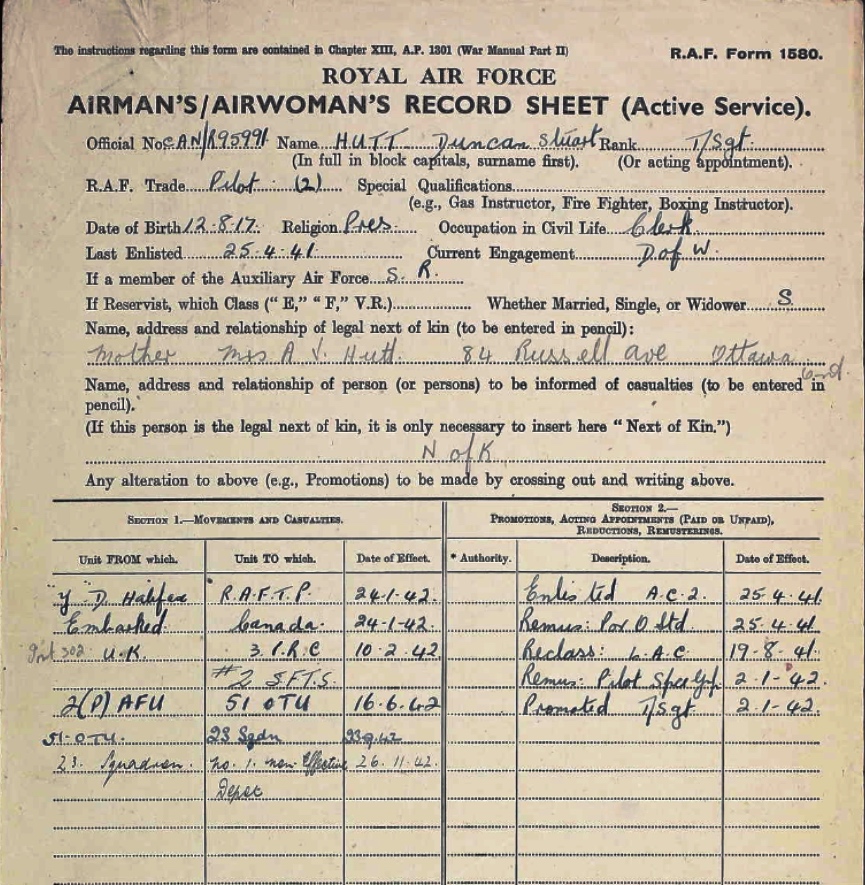 The instructions regarding this form are contained in Chapter XIII, A.P. 1301 (War Manual Part II) R.A.F. Form 1580.
ROYAL AIR FORCE
AIRMAN'S/AIRWOMAN'S RECORD SHEET (Active Service).
Official No. CAN/R95991 Name HUTT Duncan Stuart Rank T/Sgt.
(In full in block capitals, surname first). (Or acting appointment).
R.A.F. Trade Pilot (2) Special Qualifications
(e.g., Gas Instructor, Fire Fighter, Boxing Instructor).
Date of Birth 12.8.17. Religion Pres Occupation in Civil Life Clerk
Last Enlisted 25.4.41. Current Engagement D of W.
If a member of the Auxiliary Air Force S. R.
If Reservist, which Class ("E," "F," V.R.) Whether Married, Single, or Widower S
Name, address and relationship of legal next of kin (to be entered in pencil):
Mother Mrs A J. Hutt. 84 Russell ave Ottawa
Name, address and relationship of person (or persons) to be informed of casualties (to be entered in
pencil).
(If this person is the legal next of kin, it is only necessary to insert here "Next of Kin.")
N of K
Any alteration to above (e.g., Promotions) to be made by crossing out and writing above.
SECTION 1.—MOVEMENTS AND CASUALTIES. SECTION 2.—
PROMOTIONS, ACTING APPOINTMENTS (PAID OR UNPAID),
REDUCTIONS, REMUSTERINGS.
Unit FROM which. Unit TO which. Date of Effect. * Authority. Description. Date of Effect.
"Y" D. Halifax R.A.F.T.P. 24-1-42. Enlisted A.C.2. 25.4.41.
Embarked Canada. 24-1-42. Remus: Std. 25.4.41
U.K. 3. P.R.C 10-2-42. Reclass: L.A.C. 19-8-41.
#2 S.F.T.S. Remus: Pilot 2-1-42.
2(P) AFU 51 OTU 16.6.42 Promoted T/Sgt 2.1-42.
51-OTU. 23 Sqdn
23. Squadron. No. 1. non Effective 26.11.42.
Depot